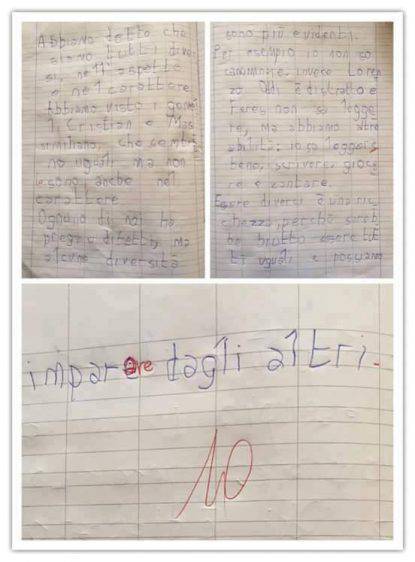 Abbiamo detto che
siamo tutti diver
si, nell'aspetto
e nel carattere.
Abbiamo visto i gemel
li, Cristian e Mas
similiano, che sembra
no uguali ma non
sono anche nel
carattere
Ognuno di noi ha
pregi e difetti, ma
alcune diversità
sono più evidenti.
Per esempio io non so
camminare, invece Loren
zo è distratto e
non sa legge
re, ma abbiamo altre
abilità: io so leggere
bene, scrivere, gioca
re e cantare.
Essere diversi è una ric
chezza, perché sareb
be brutto essere tut
ti uguali e possiamo
imparare dagli altri.
10